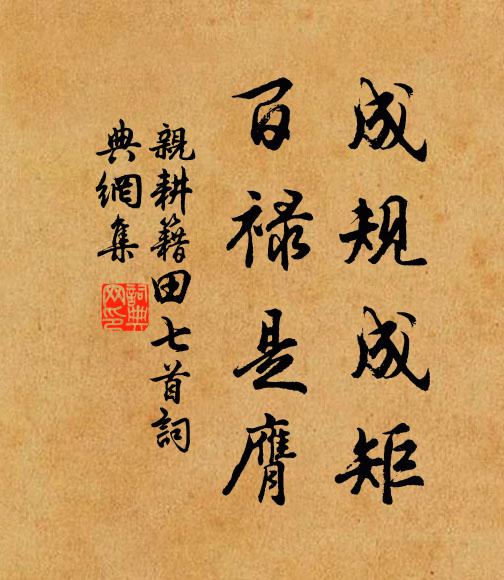 成規成矩
百祿是膺
親耕籍田七首詞
典網集
詞典網印